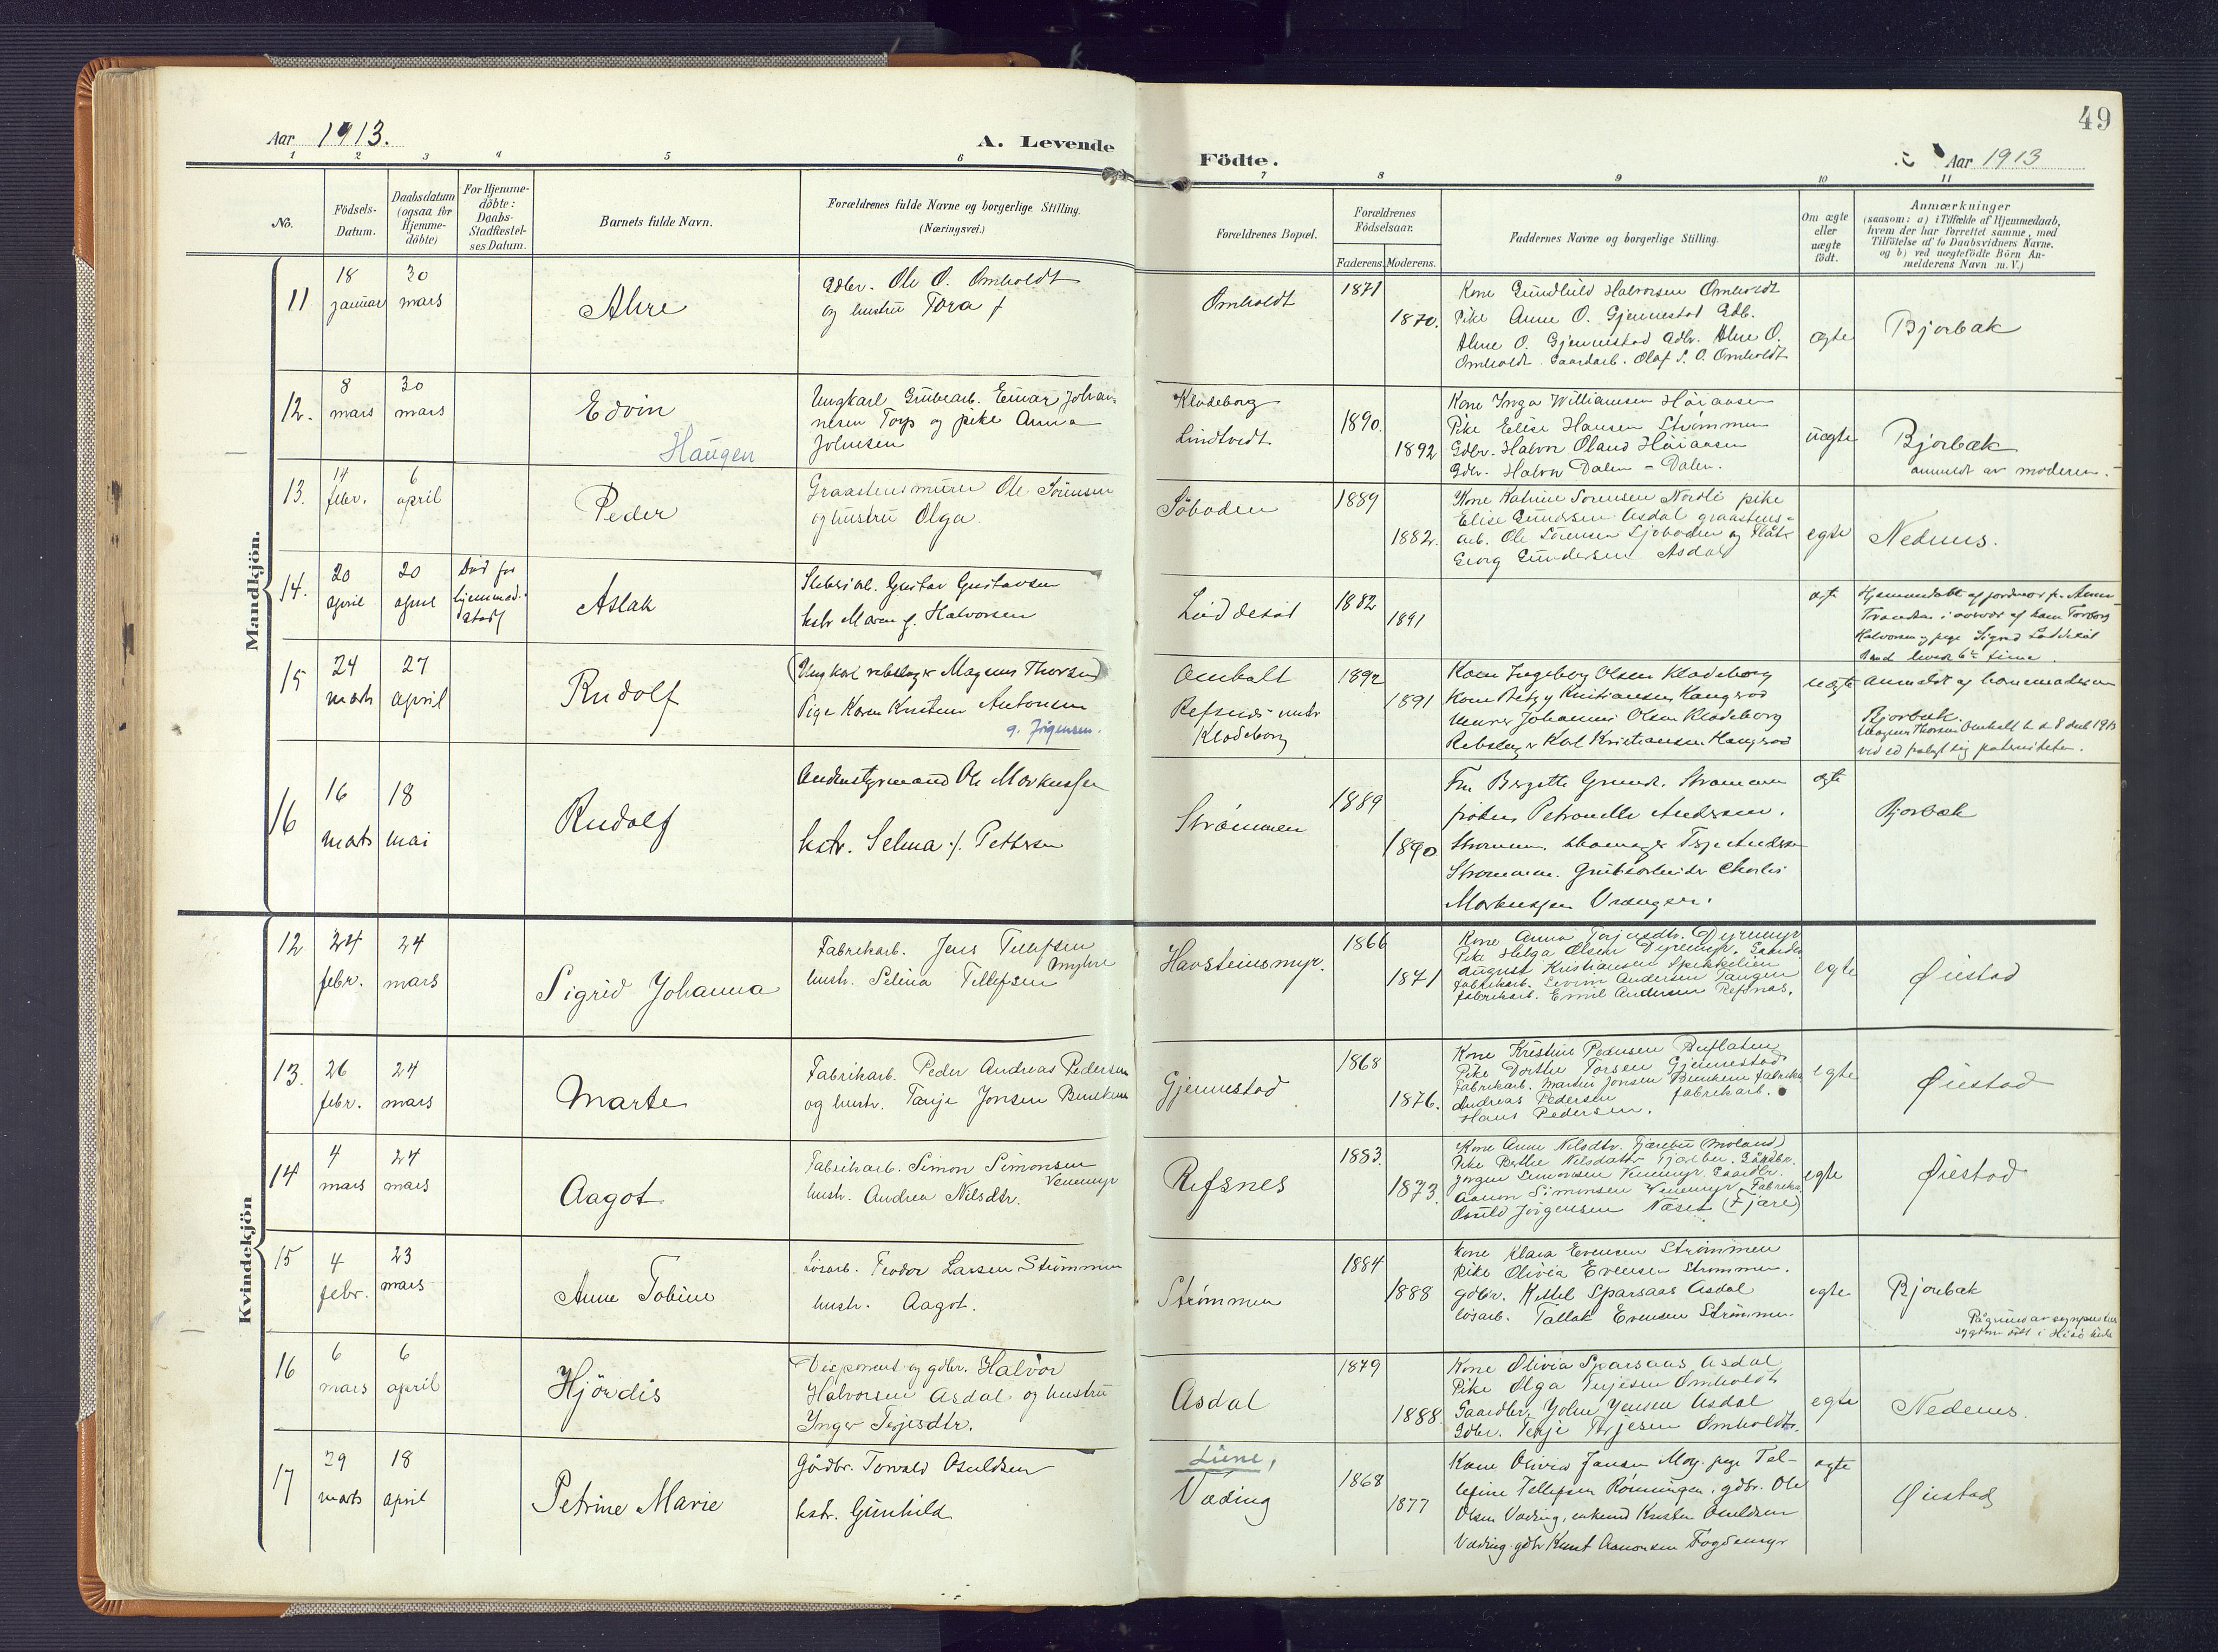 49
Aar 1913.
A. Levende
Födte.
Aar 1913
1 2 3 4 5 6 7 8 9 10 11
No.
Födsels-
Datum.
Daabsdatum
(ogsaa for
Hjemme-
döbte)
For Hjemme-
döbte:
Daabs-
Stadfestel-
ses Datum.
Barnets fulde Navn.
Forældrenes fulde Navne og borgerlige Stilling.
(Næringsvei.)
Forældrenes Bopæl.
Forældrenes
Födselsaar.
Faderens. Moderens.
Faddernes Navne og borgerlige Stilling.
Om ægte
eller
uægte
födt.
Anmærkninger
(saasom: a) i Tilfælde af Hjemmedaab,
hvem der har forrettet samme, med
Tilföielse af to Daabsvidners Navne,
og b) ved uægtefödte Börn An-
melderens Navn m. V.)
Mandkjön.
11
18
januar
30
mars
Ahre
Gdbr. Ole O. Omholdt
og hustru Tora
Omholdt
1871
1870.
Kone Gundhild Halvorsen Omholdt
Pike Anne O. Gjennestad Gdb.
O. Gjennestad Gdbr. O.
Omholdt Gaardarb. Olaf S. O. Omholdt
ægte
Bjorbæk
12.
8
mars
30
mars
Edvin
Haugen
Ungkarl Grubearb. Einar Johan-
nesen Torp og pike Anna
Johnsen
Klodeborg
Lindtvedt
1890.
1892
Kone Inga Williamsen
Pike Elise Hansen Strømmen
Gdbr. Halvor Øland
Gdbr. Halvor Dalen - Dalen.
uægte
Bjorbæk
anmeldt av moderen.
13.
14
febr.
6
april
Peder
Graastensmurer Ole Sørensen
og hustru Olga
Söboden
1889
1882.
Kone Katrine Sorensen Nordli pike
Elise Gundersen Asdal graastens-
arb. Ole Sørensen Sjoboden og
Georg Gundersen Asdal
egte
Nedenes.
14.
20
april
20
april
Död før
hjemmed.
stadf
Aslak
Gustav Gustavsen
hstr Maren f. Halvorsen
Luddesöl
1882
1891
ægt
Hjemmedøbt af jordmor
i nærvær af kone Torborg
Halvorsen og pige Sigrid Luddesöl
15
24
mars
27
april
Rudolf
(Ungkarl rebslager Magnus Thorsen)
Pige Karen Kristine Antonsen
g. Jörgensen.
Omholt
Refsnes
Klodeborg
1892
1891
Kone Ingeborg Olsen Klodeborg
Kone Betzy Kristiansen
Murer Johannes Olsen Klodeborg
Rebslager Karl Kristiansen
uægte
anmeldt af barnemoderen
Bjorbæk.
Magnus Thorsen Omholt 1913
ved ed fralagt sig paterniteten.
16
16
mars
18
mai
Rudolf
Andenstyrmand Ole Markussen
hstr. Selma f. Pettersen
Strømmen
1889
1890
Fru Bergitte Strømmen
frøken Petronelle Andersen.
Strømmen. Terje Andersen
Strømmen. Grubearbeider Charles
Markussen Vrængen.
ægte
Bjorbæk
Kvindekjön
12
24
febr.
24
mars
Sigrid Johanna
Fabrikarb. Jens Tellefsen
Myhre
hustr. Selina Tellefsen
Havsteinsmyr.
1866
1871
Kone Anna Terjesdtr. Dyremyr
Pike Helga Olsen Dyremyr.
August Kristiansen Spekkelien
fabrikarb. Andersen Tangen
fabrikarb. Emil Andersen Refsnæs.
egte
Øiestad
13.
26
febr.
24
mars
Marte
Fabrikarb. Peder Andreas Pedersen
og hustr. Tanje Jonsen
Gjennestad
1868
1876.
Kone Kristine Pedersen
Pike Dorthe Torsen Gjennestad
Fabrikarb. Martin Jonsen
Andreas Pedersen fabrikarb.
Hans Pedersen.
egte
Øiestad
14
4
mars
24
mars
Aagot
Fabrikarb. Simon Simonsen
Venemyr
hustr. Andrea Nilsdtr.
Refsnes
1883.
1873.
Kone Anne Nilsdtr. (Moland)
Pike Berthe Nilsdatter
Jørgen Simonsen Venemyr Gaardbr.
Aanon Simonsen Venemyr
Osuld Jörgensen Næset (Fjære)
egte
Øiestad
15
4
febr.
23
mars
Anne Tobine
Lösarb. Teodor Larsen Strömmen
hustr. Aagot.
Strömmen
1884
1888
Kone Klara Evensen Strömmen
Pike Olivia Evensen Strommen.
gdbr. Kittel Sparsaas Asdal
lösarb. Tallak Evensen Strömmen.
egte
Bjorbæk
16
6
mars
6
april
Hjördis
Disponent og gdbr. Halvor
Halvorsen Asdal og hustru
Inger Terjesdtr.
Asdal
1879
1888
Kone Olivia Sparsaas Asdal
Pike Olga Terjesen Omholdt
Gaardbr. John Jensen Asdal
Gdbr. Terje Terjesen Omholdt.
egte
Nedenes.
17
29
mars
18
april
Petrine Marie
Gårdbr. Torvald Osuldsen
hstr. Gunhild
Lune,
Væding
1868
1877
Kone Olivia Jansen Moy. pige Tal-
lefine Tellefsen Rönningen, gdbr. Ole
Olsen Væding, Kristen Osuldsen
Væding. gdbr Knut Aanonsen Fogdemyr
ægte
Øiestad